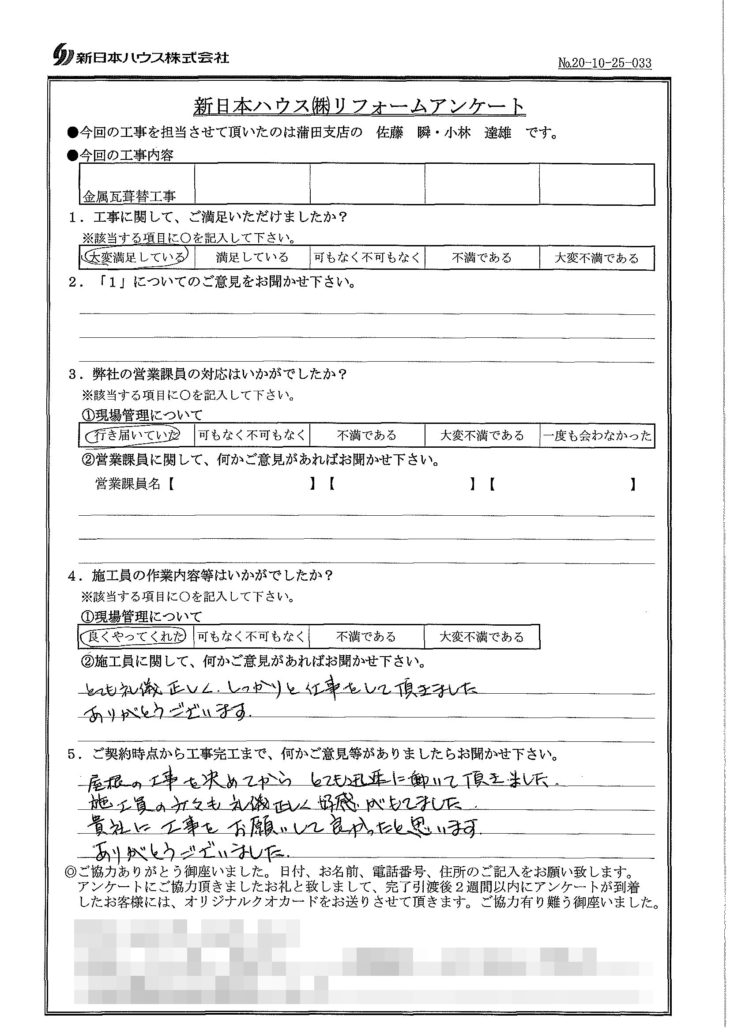 新日本ハウス株式会社
№20-10-25-033
新日本ハウス㈱リフォームアンケート
●今回の工事を担当させて頂いたのは蒲田支店の 佐藤 瞬・小林 達雄 です。
●今回の工事内容
金属瓦葺替工事
1.工事に関して、ご満足いただけましたか?
※該当する項目に○を記入して下さい。
大変満足している 満足している 可もなく不可もなく 不満である 大変不満である
2.「1」についてのご意見をお聞かせ下さい。
3.弊社の営業課員の対応はいかがでしたか?
※該当する項目に○を記入して下さい。
①現場管理について
行き届いていた 可もなく不可もなく 不満である 大変不満である 一度も会わなかった
②営業課員に関して、何かご意見があればお聞かせ下さい。
営業課員名【 】【 】【 】
4.施工員の作業内容等はいかがでしたか?
※該当する項目に○を記入して下さい。
①現場管理について
良くやってくれた 可もなく不可もなく 不満である 大変不満である
②施工員に関して、何かご意見があればお聞かせ下さい。
とても礼儀正しく、しっかりと仕事をして頂きました
ありがとうございます。
5.ご契約時点から工事完工まで、何かご意見等がありましたらお聞かせ下さい。
屋根の工事を決めてから とても迅速に動いて頂きました。
施工員の方々も礼儀正しく好感がもてました。
貴社に工事をお願いして良かったと思います。
ありがとうございました。
◎ご協力ありがとう御座いました。日付、お名前、電話番号、住所のご記入をお願い致します。
アンケートにご協力頂きましたお礼と致しまして、完了引渡後2週間以内にアンケートが到着
したお客様には、オリジナルクオカードをお送りさせて頂きます。ご協力有り難う御座いました。